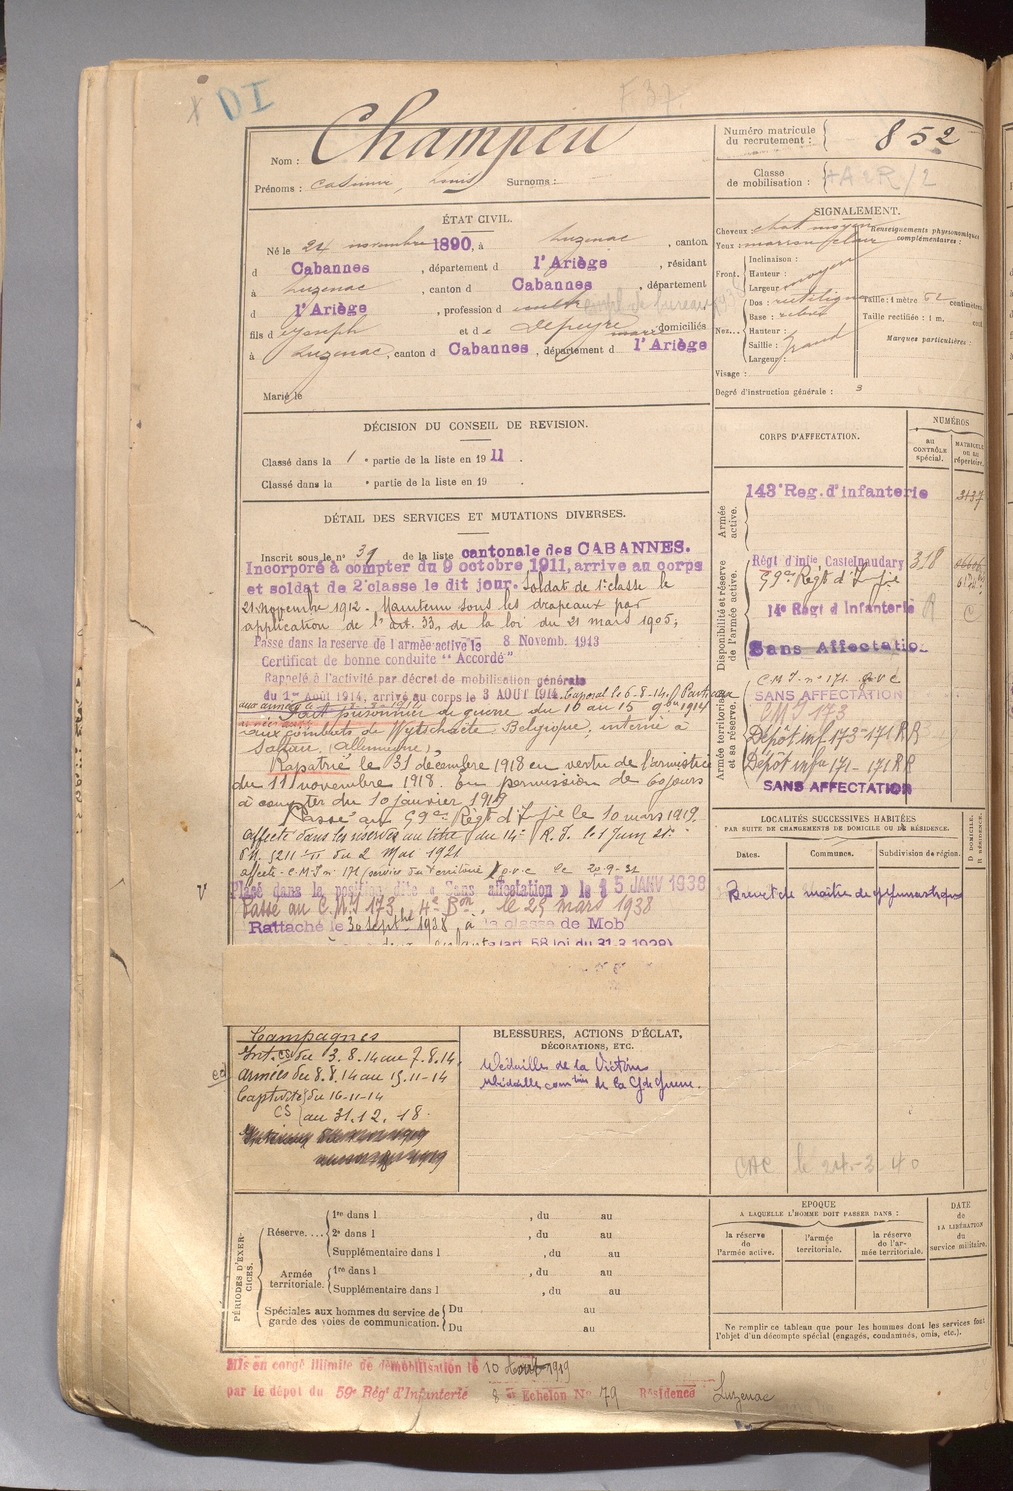 DI
F. 37.
Nom : Champeil
Prénoms : Casimir, Louis Surnoms :
Numéro matricule du recrutement : 852
Classe de mobilisation :
ÉTAT CIVIL.
Né le 24 novembre 1890, à Luzenac, canton
d Cabannes, département d l'Ariège, résidant
à Luzenac, canton d Cabannes, département
d l'Ariège, profession d
fils d Joseph et de Depeyre marie domiciliés
à Luzenac, canton d Cabannes, département d l'Ariège
Marié le
SIGNALEMENT.
Cheveux : chat moyen
Yeux : marron clair
Renseignements physionomiques complémentaires :
Front. Inclinaison :
Hauteur : moyen
Largeur
Nez... Dos : rectiligne
Base :
Hauteur :
Saillie : grand
Largeur :
Taille : 1 mètre 62 centimètres
Taille rectifiée : 1 m. cent.
Marques particulières :
Visage :
Degré d'instruction générale : 3
DÉCISION DU CONSEIL DE REVISION.
Classé dans la 1 e partie de la liste en 1911.
Classé dans la e partie de la liste en 19 .
DÉTAIL DES SERVICES ET MUTATIONS DIVERSES.
Inscrit sous le n° 39 de la liste cantonale des CABANNES.
Incorporé à compter du 9 octobre 1911, arrive au corps
et soldat de 2e classe le dit jour. Soldat de 1e classe le
21 novembre 1912. Maintenu sous les drapeaux par
application de l'art. 33, de la loi du 21 mars 1905,
Passé dans la reserve de l'armée active le 8 Novemb. 1913
Certificat de bonne conduite "Accordé"
Rappelé à l'activité par décret de mobilisation générale
du 1er Août 1914, arrivé au corps le 3 AOUT 1914. Caporal le 6-8-14. Parti aux
aux armées le 8-8-1914
Fait prisonnier de guerre du 10 au 15 9bre 1914
aux combats de Wytschaete Belgique, interné à
Soltau (Allemagne),
Rapatrié le 31 décembre 1918 en vertu de l'armistice
du 11 novembre 1918. En permission de 60 jours
à compter du 10 janvier 1919
Passé au 59e Régt d'Ifie le 10 mars 1919.
affecté dans les réserves au titre du 14e R.I. le 1 Juin 21.
D.M. 5211 du 2 Mai 1921
affecté C.M.I n° 171 (service du territoire) p.v.c le 20-9-31
Placé dans la position dite « Sans affectation » le 15 JANV 1938
Passé au C.M.I 173, 4e Bon, le 25 mars 1938
Rattaché le 30 septbre 1938, à la classe de Mob
(art. 58 loi du 31-3-1928)
CORPS D'AFFECTATION.
NUMÉROS
au CONTRÔLE spécial.
MATRICULE OU AU répertoire.
Armée active.
143e Reg. d'infanterie 3137
Disponibilité et réserve de l'armée active.
Régt d'infie Castelnaudary 318
59e Régt d'Ifie
14e Régt d'Infanterie R
Sans Affectation
Armée territoriale et sa réserve.
C.M.I. n° 171 p.v.c
SANS AFFECTATION
CMI 173
Dépôt inf 173-171 RR
Dépôt infie 171-171 RR
SANS AFFECTATION
LOCALITÉS SUCCESSIVES HABITÉES
PAR SUITE DE CHANGEMENTS DE DOMICILE OU DE RÉSIDENCE.
Dates. Communes. Subdivision de région. D. DOMICILE. R. RÉSIDENCE.
Brevet de maître de gymnastique
CAC le 24-2-40
Campagnes
Int. CS du 3.8.14 au 7.8.14.
armées du 8.8.14 au 15-11-14
Captivité du 16-11-14
CS au 31.12.18.
BLESSURES, ACTIONS D'ÉCLAT,
DÉCORATIONS, ETC.
Médailles de la Victoire
Médaille comtive de la Gde Guerre.
PÉRIODES D'EXERCICES.
Réserve.... 1re dans l , du au
2e dans l , du au
Supplémentaire dans l , du au
Armée territoriale. 1re dans l , du au
Supplémentaire dans l , du au
Spéciales aux hommes du service de garde des voies de communication. Du au
Du au
EPOQUE
A LAQUELLE L'HOMME DOIT PASSER DANS :
la réserve de l'armée active.
l'armée territoriale.
la réserve de l'armée territoriale.
DATE de LA LIBÉRATION du service militaire.
Ne remplir ce tableau que pour les hommes dont les services font
l'objet d'un décompte spécial (engagés, condamnés, omis, etc.).
Mis en congé illimité de démobilisation le 10 Aout 1919
par le dépot du 59e Régt d'Infanterie 8e Echelon No 79 Résidence Luzenac